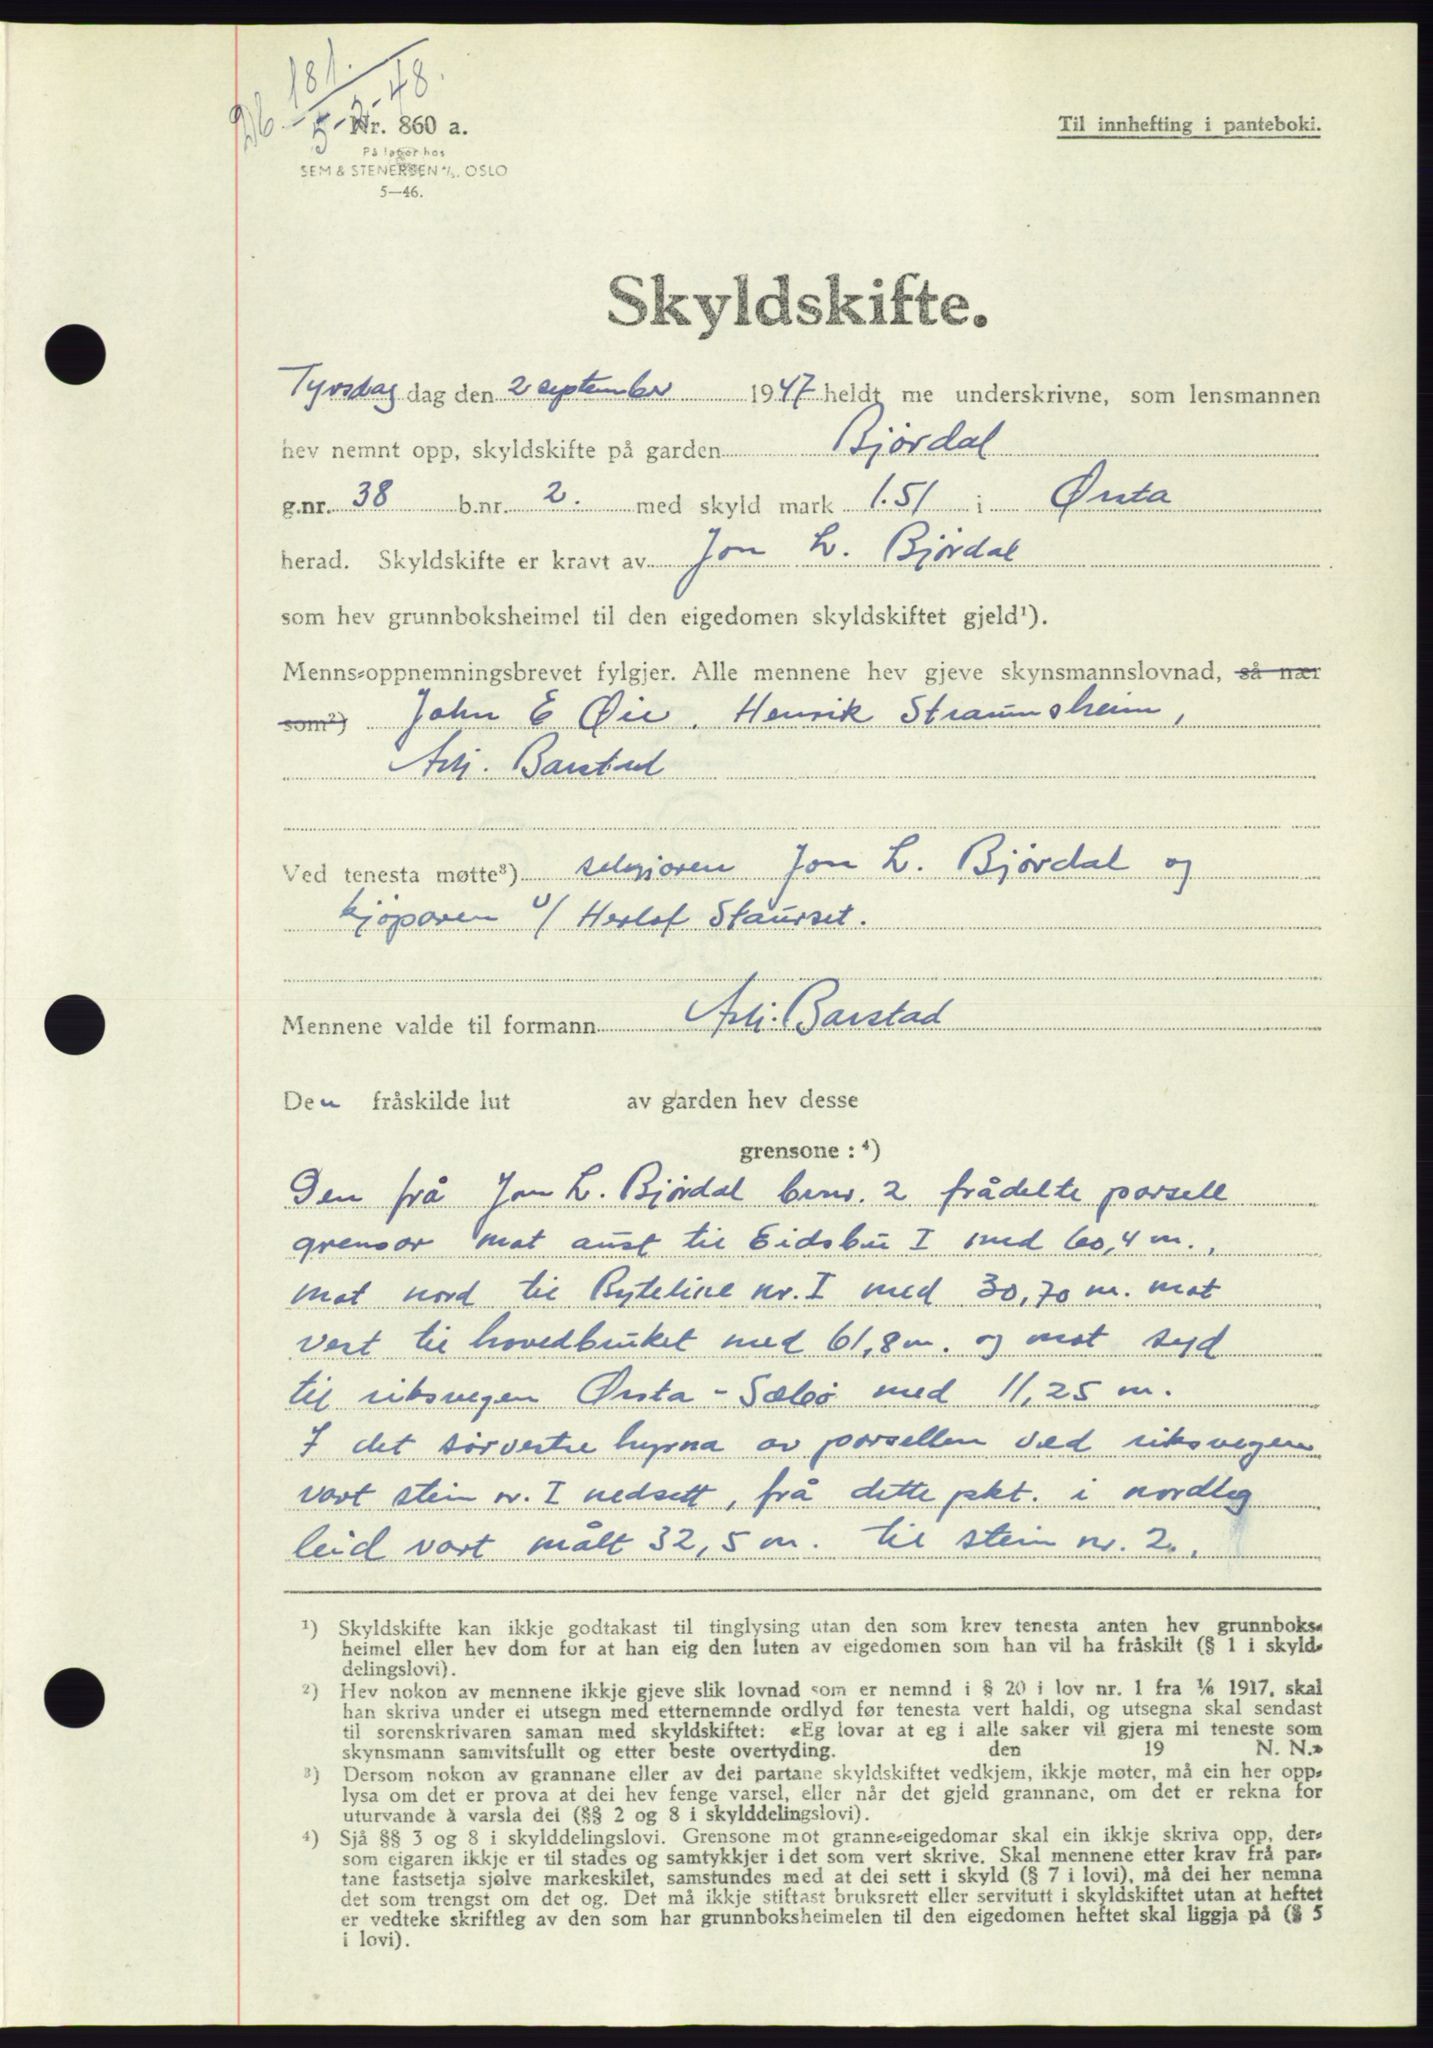 Db. 181.
5-2-48.
Nr. 860 a.
På lager hos
SEM & STENERSEN A/S, OSLO
5—46.
Til innhefting i panteboki.
Skyldskifte.
Tyrsdag dag den 2 september 1947 heldt me underskrivne, som lensmannen
hev nemnt opp, skyldskifte på garden Bjørdal
g.nr. 38 b.nr. 2. med skyld mark 1.51 i Ørsta
herad. Skyldskifte er kravt av Jon L. Bjørdal
som hev grunnboksheimel til den eigedomen skyldskiftet gjeld¹).
Menns-oppnemningsbrevet fylgjer. Alle mennene hev gjeve skynsmannslovnad, så nær
som²) John E Øie, Henrik Straumsheim,
Barstad
Ved tenesta møtte³) seljaren Jon L. Bjørdal og
kjøparen v/ Herlof Staurset.
Mennene valde til formann Barstad
Den fråskilde lut av garden hev desse
grensone : ⁴)
Den frå Jon L. Bjørdal bnr. 2 frådelte parsell
grensar mot aust til Eidsbu I med 60,4 m.,
mot nord til Byteline nr. I med 30,70 m. mot
vest til hovedbruket med 61,8 m. og mot syd
til riksvegen Ørsta - Sæbø med 11,25 m.
I det sørvestre hyrna av parsellen ved riksvegen
vart stein nr. I nedsett, frå dette pkt. i nordleg
leid vart målt 32,5 m. til stein nr. 2.,
¹) Skyldskifte kan ikkje godtakast til tinglysing utan den som krev tenesta anten hev grunnboks-
heimel eller hev dom for at han eig den luten av eigedomen som han vil ha fråskilt (§ 1 i skyld-
delingslovi).
²) Hev nokon av mennene ikkje gjeve slik lovnad som er nemnd i § 20 i lov nr. 1 fra 1/6 1917, skal
han skriva under ei utsegn med etternemnde ordlyd før tenesta vert haldi, og utsegna skal sendast
til sorenskrivaren saman med skyldskiftet: «Eg lovar at eg i alle saker vil gjera mi teneste som
skynsmann samvitsfullt og etter beste overtyding. den 19 N. N.»
³) Dersom nokon av grannane eller av dei partane skyldskiftet vedkjem, ikkje møter, må ein her opp-
lysa om det er prova at dei hev fenge varsel, eller når det gjeld grannane, om det er rekna for
uturvande å varsla dei (§§ 2 og 8 i skylddelingslovi).
⁴) Sjå §§ 3 og 8 i skylddelingslovi. Grensone mot granne-eigedomar skal ein ikkje skriva opp, der-
som eigaren ikkje er til stades og samtykkjer i det som vert skrive. Skal mennene etter krav frå par-
tane fastsetja sjølve markeskilet, samstundes med at dei sett i skyld (§ 7 i lovi), må dei her nemna
det som trengst om det og. Det må ikkje stiftast bruksrett eller servitutt i skyldskiftet utan at heftet
er vedteke skriftleg av den som har grunnboksheimelen til den eigedomen heftet skal liggja på (§ 5
i lovi).